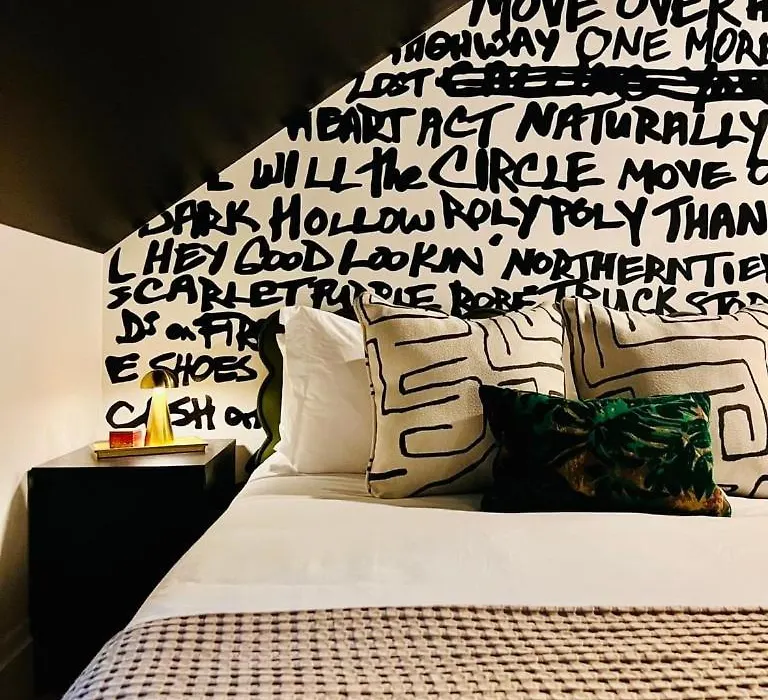 MOVE OVER
HIGHWAY ONE MORE
LOST
HEART ACT NATURALLY
WILL the CIRCLE MOVE
DARK HOLLOW ROLY POLY THAN
L HEY GOOD LOOKIN' NORTHERN TIE
SCARLET PURPLE ROBE TRUCK STO
D's on FIR
E SHOES
CASH on